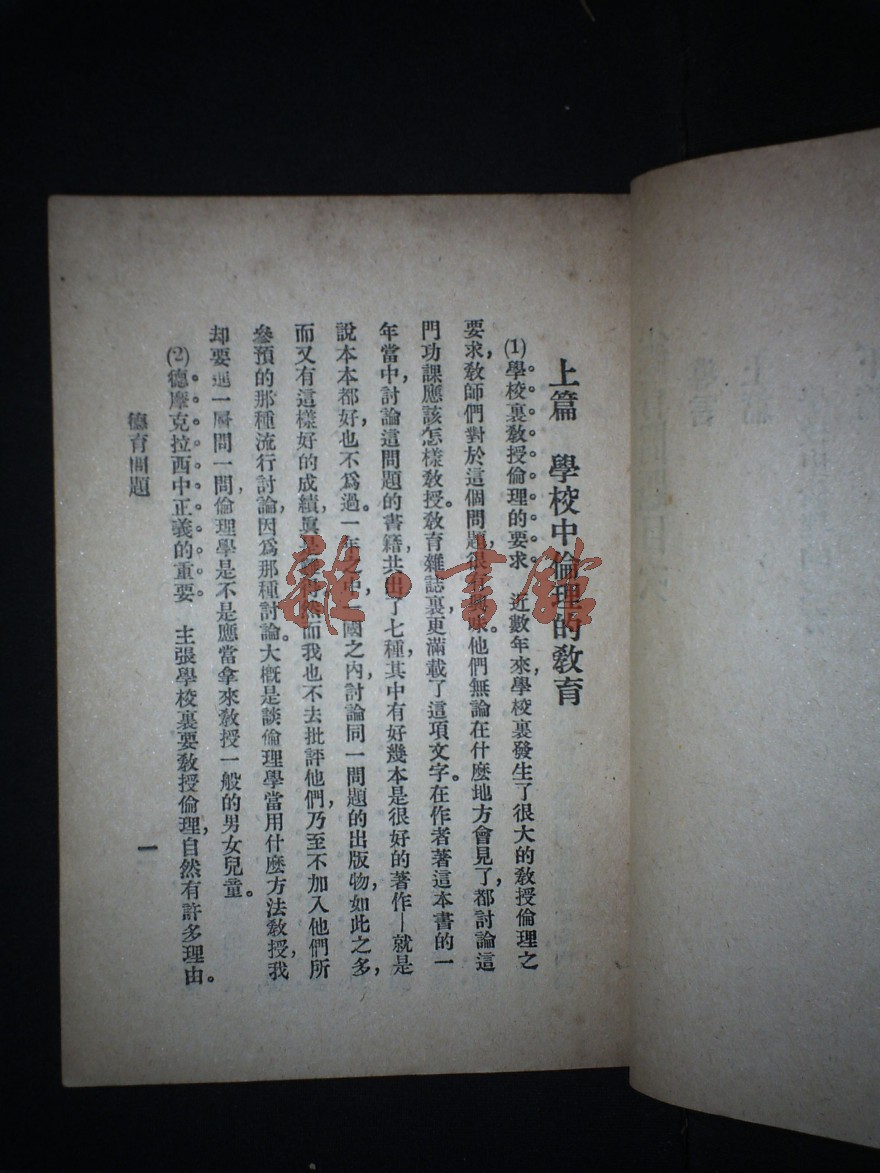 上篇　學校中倫理的教育
(1)學校裏教授倫理的要求　近數年來，學校裏發生了很大的教授倫理之
要求，教師們對於這個問題，很有興味，他們無論在什麼地方會見了，都討論這
門功課應該怎樣教授。教育雜誌裏，更滿載了這項文字。在作者著這本書的一
年當中，討論這問題的書籍，共出了七種，其中有好幾本是很好的著作—就是
說本本都好也不爲過。一年之中，一國之內，討論同一問題的出版物，如此之多，
而又有這樣好的成績，眞是難得，然而我也不去批評他們，乃至不加入他們所
參預的那種流行討論，因爲那種討論，大概是談倫理學當用什麼方法教授，我
却要進一層問一問倫理學是不是應當拿來教授一般的男女兒童。
(2)德摩克拉西中正義的重要　主張學校裏要教授倫理，自然有許多理由。
德育問題
一
雜·書館